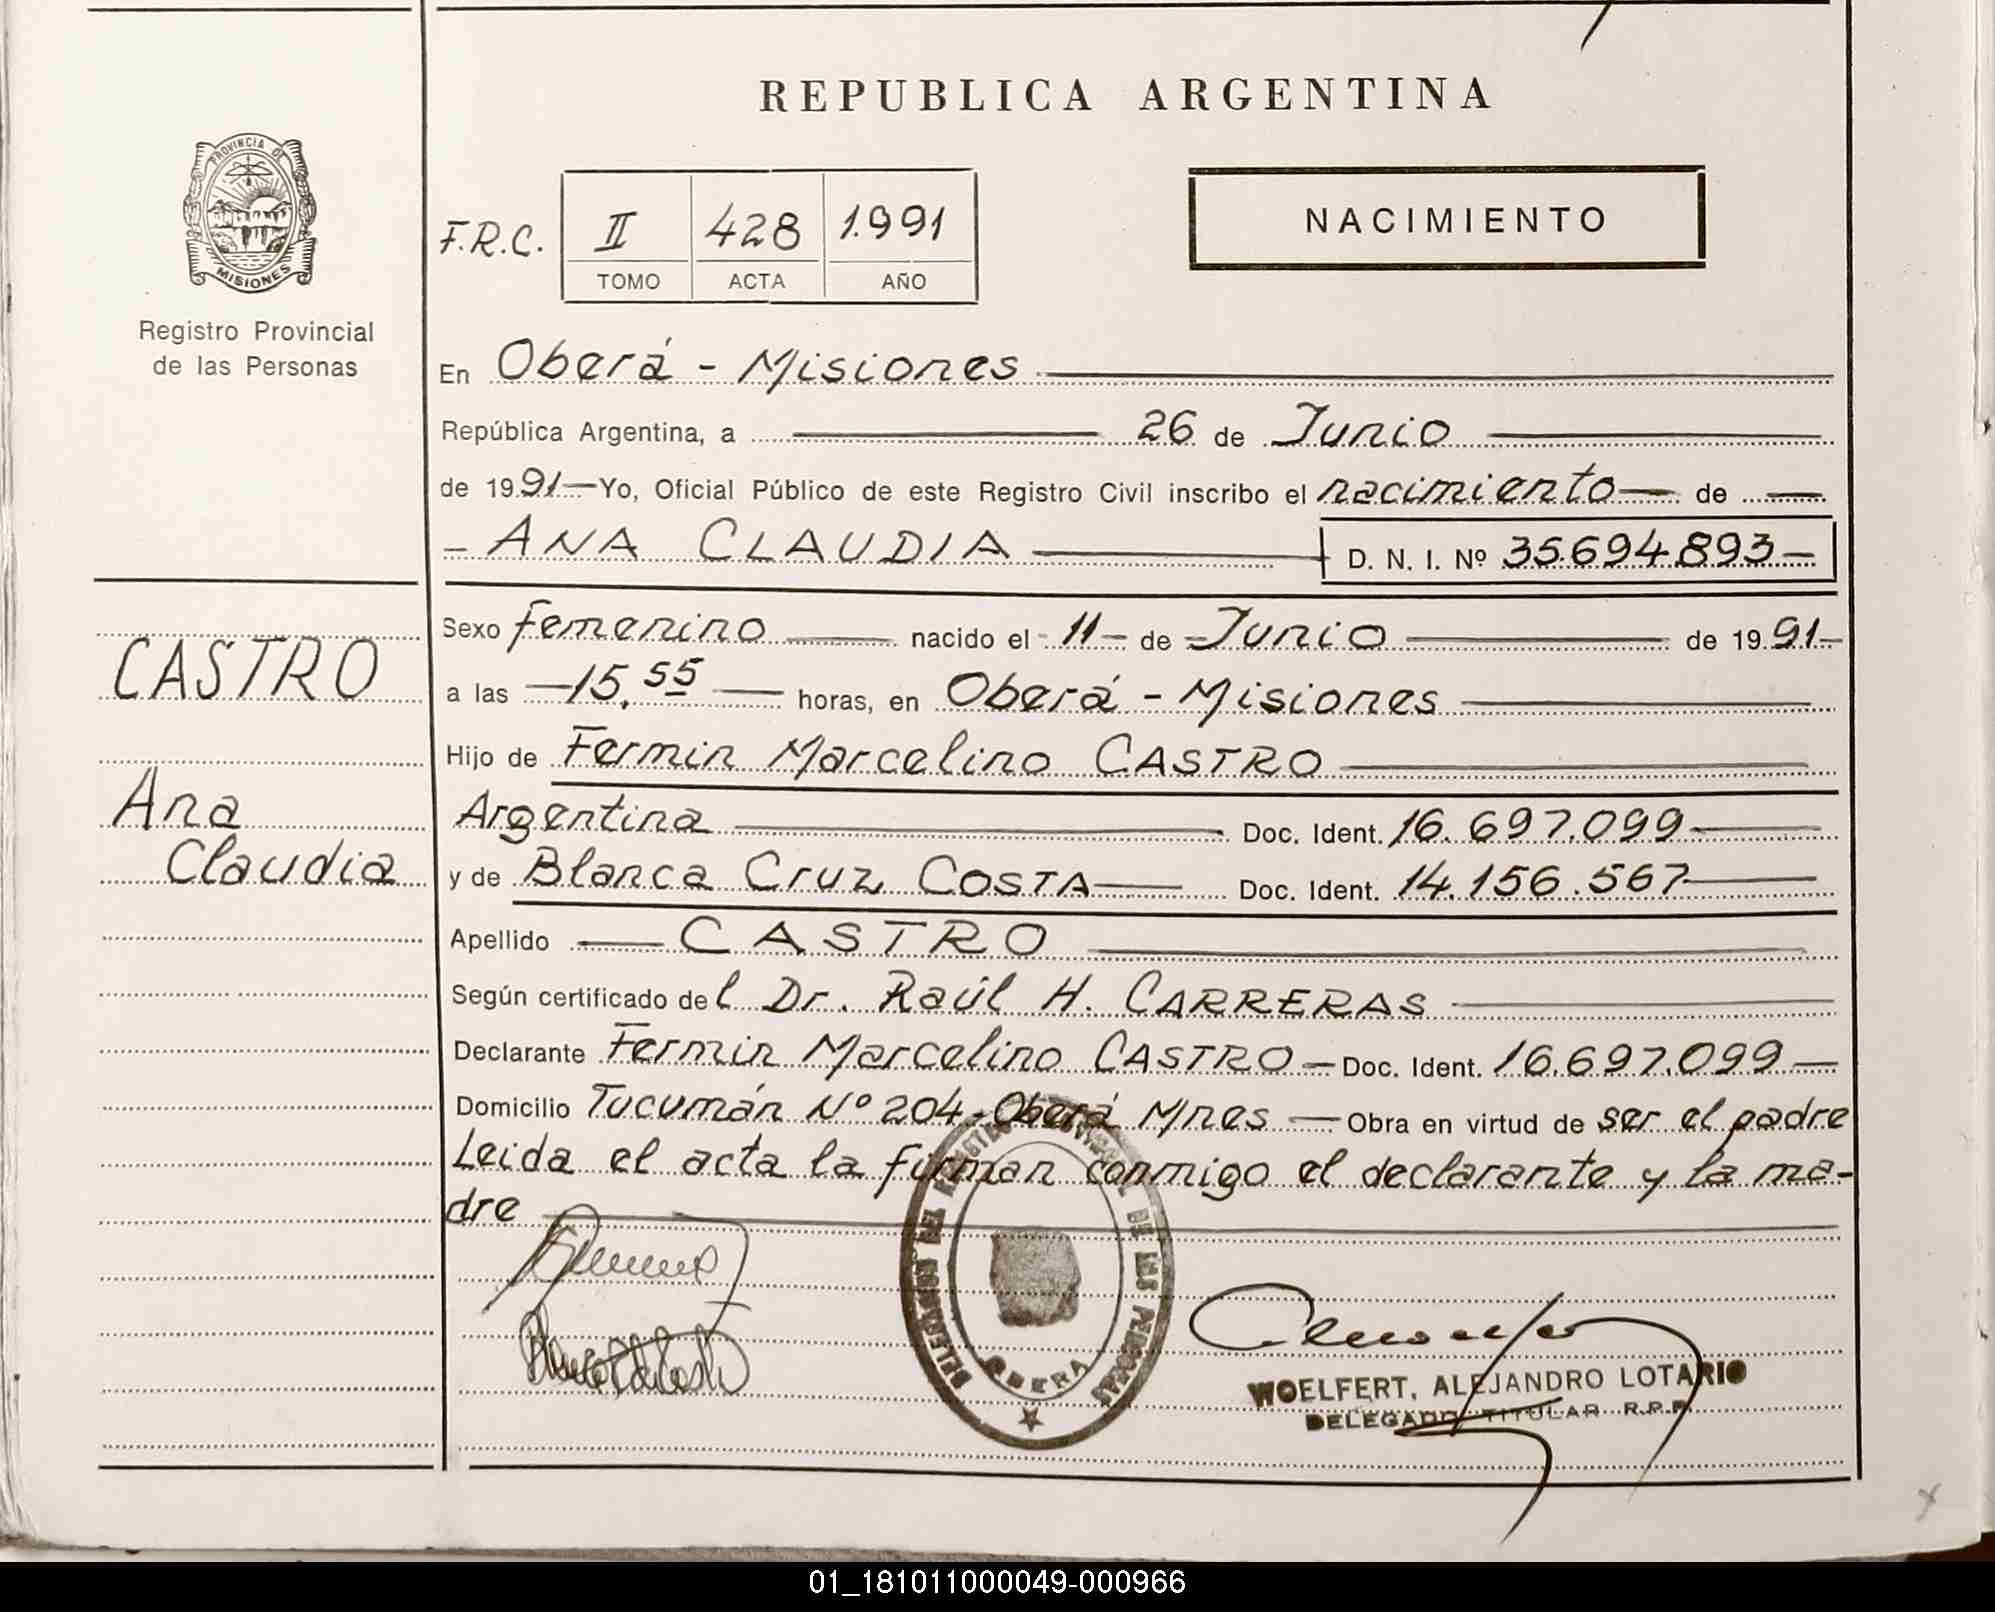 REPUBLICA ARGENTINA
PROVINCIA DE
MISIONES
Registro Provincial
de las Personas
F.R.C. II 428 1.991
TOMO ACTA AÑO
NACIMIENTO
En Oberá - Misiones
República Argentina, a 26 de Junio
de 1991 — Yo, Oficial Público de este Registro Civil inscribo el nacimiento — de —
- ANA CLAUDIA — D. N. I. Nº 35.694.893 —
CASTRO
Ana
Claudia
Sexo femenino — nacido el - 11 - de - Junio — de 1991 -
a las — 15,55 — horas, en Oberá - Misiones
Hijo de Fermin Marcelino CASTRO
Argentina — Doc. Ident. 16.697.099 —
y de Blanca Cruz COSTA — Doc. Ident. 14.156.567 —
Apellido — CASTRO
Según certificado del Dr. Raúl H. CARRERAS
Declarante Fermin Marcelino CASTRO — Doc. Ident. 16.697.099 —
Domicilio Tucumán Nº 204 - Oberá Mnes — Obra en virtud de ser el padre
Leida el acta la firman conmigo el declarante y la ma-
dre
DELEGACION DEL REGISTRO PROVINCIAL DE LAS PERSONAS
OBERA
WOELFERT, ALEJANDRO LOTARIO
DELEGADO TITULAR R.P.P.
01_181011000049-000966